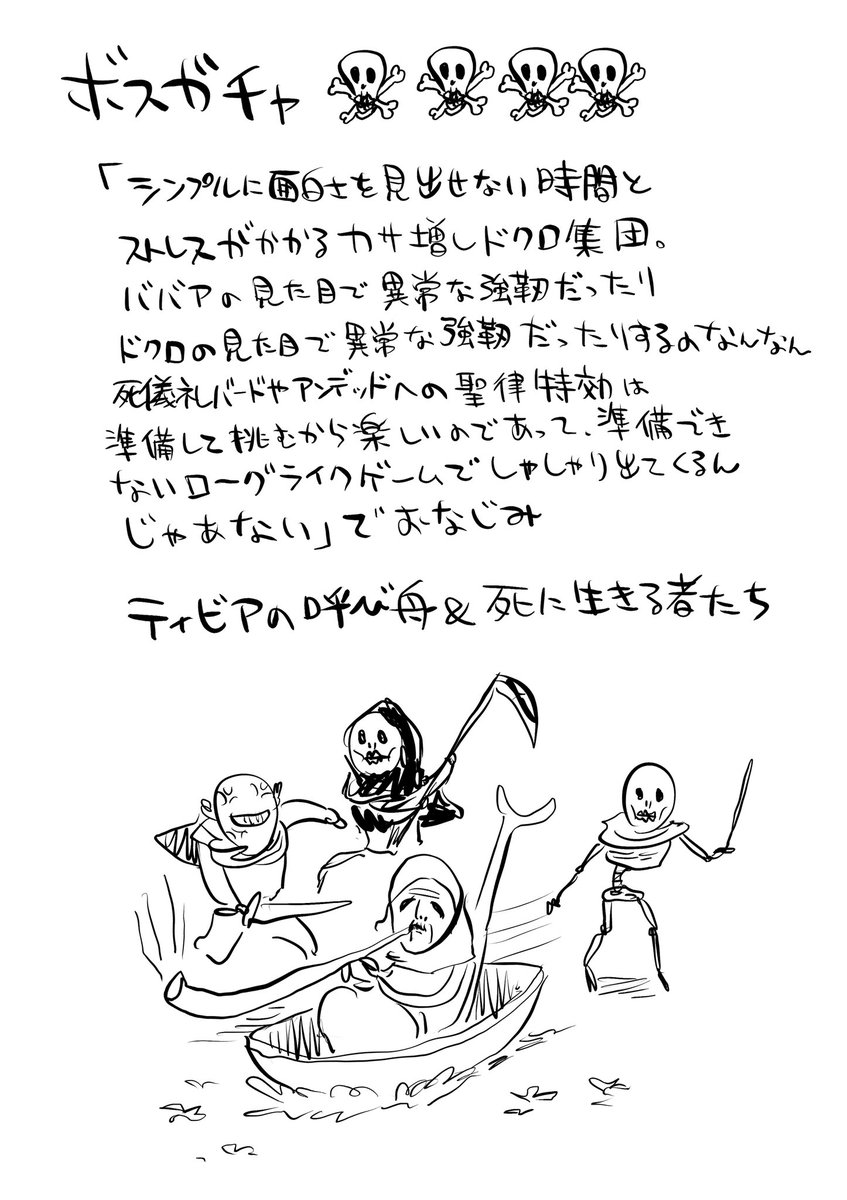 ボスガチャ
「シンプルに面白さを見出せない時間と
ストレスがかかるカサ増しドクロ集団。
ババアの見た目で異常な強靭だったり
ドクロの見た目で異常な強靭だったりするのなんなん
死儀礼バードやアンデッドへの聖律特効は
準備して挑むから楽しいのであって、準備でき
ないローグライクゲームでしゃしゃり出てくるん
じゃあない」でおなじみ
ティビアの呼び舟&死に生きる者たち